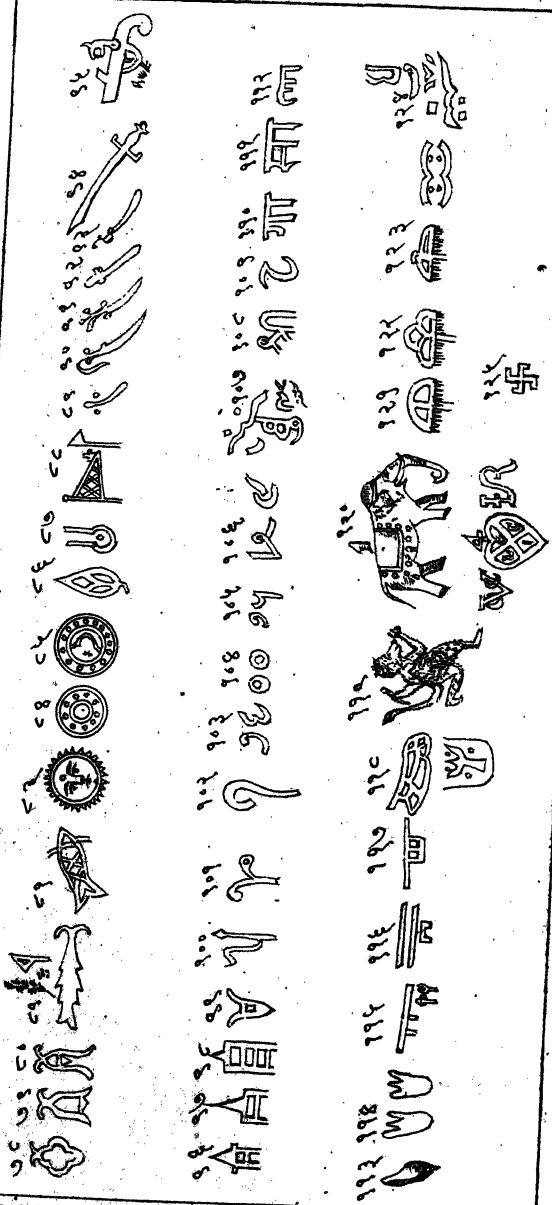 ७८ ७९ ८० ८१ ८२ ८३ ८४ ८५ ८६ ८७ ८८ ८९ ९० ९१ ९२ ९३ ९४ ९५
९६ ९७ ९८ ९९ १०० १०१ १०२ १०३ १०४ १०५ १०६ १०७ १०८ १०९ ११० १११ ११२
११३ ११४ ११५ ११६ ११७ ११८ ११९ १२० १२१ १२२ १२३ १२४
१२५